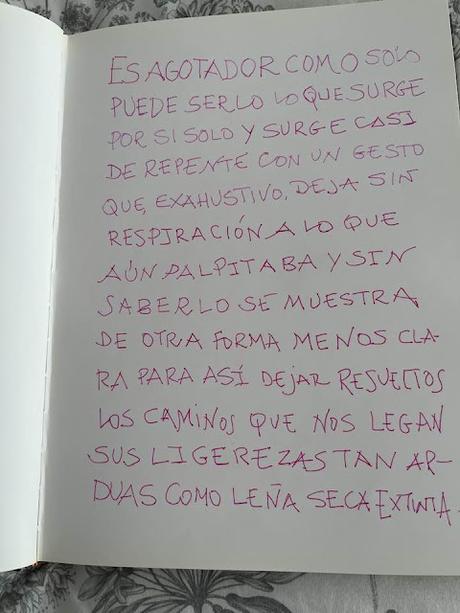 ES AGOTADOR COMO SOLO
PUEDE SERLO LO QUE SURGE
POR SI SOLO Y SURGE CASI
DE REPENTE CON UN GESTO
QUE, EXAHUSTIVO, DEJA SIN
RESPIRACIÓN A LO QUE
AÚN PALPITABA Y SIN
SABERLO SE MUESTRA
DE OTRA FORMA MENOS CLA-
RA PARA ASÍ DEJAR RESUELTOS
LOS CAMINOS QUE NOS LEGAN
SUS LIGEREZAS TAN AR-
DUAS COMO LEÑA SECA EXTINTA.